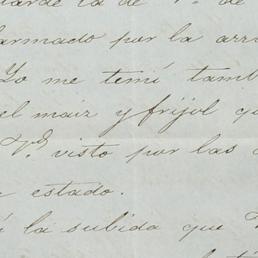 tarde la de V. de
armado por la arri
Yo me temí tamb
el maiz y frijol qu
V. visto por las
estado.
la subida que